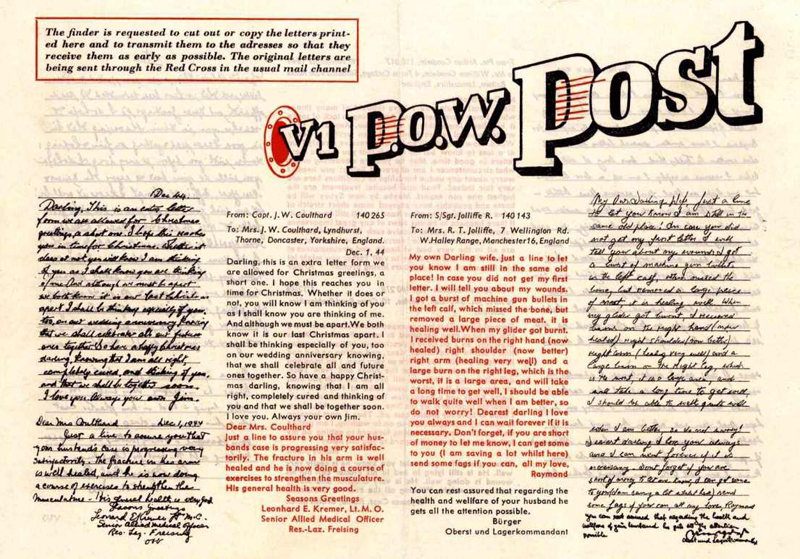 The finder is requested to cut out or copy the letters print-
ed here and to transmit them to the adresses so that they
receive them as early as possible. The original letters are
being sent through the Red Cross in the usual mail channel
V1 P.O.W. Post
Dec 44.
Darling, This is an extra letter
form we are allowed for Christmas
greetings, a short one. I hope this reaches
you in time for Christmas. Whether it
does or not you will know I am thinking
of you as I shall know you are thinking
of me. And although we must be apart
we both know it is our last Christmas
apart. I shall be thinking especially of you,
too, on our wedding anniversary knowing
that we shall celebrate all our future
ones together. So have a happy Christmas
darling, knowing that I am all right,
completely cured, and thinking of you,
and that we shall be together soon.
I love you. Always your own Jim.
Dear Mrs Coulthard Dec 1, 1944
Just a line to assure you that
your husbands case is progressing very
satisfactorily. The fracture in his arm
is well healed, and he is now doing
a course of exercises to strengthen the
musculature. His general health is very good.
Seasons Greetings
Leonard E Kremer Lt. M.C.
Senior Allied Medical Officer
Res-Laz-Freising
From: Capt. J. W. Coulthard 140 265
To: Mrs. J. W. Coulthard, Lyndhurst,
Thorne, Doncaster, Yorkshire, England.
Dec. 1, 44
Darling, this is an extra letter form we
are allowed for Christmas greetings, a
short one. I hope this reaches you in
time for Christmas. Whether it does or
not, you will know I am thinking of you
as I shall know you are thinking of me.
And although we must be apart. We both
know it is our last Christmas apart. I
shall be thinking especially of you, too
on our wedding anniversary knowing,
that we shall celebrate all and future
ones together. So have a happy Christ-
mas darling, knowing that I am all
right, completely cured and thinking of
you and that we shall be together soon.
I love you. Always your own Jim.
Dear Mrs. Coulthard
Just a line to assure you that your hus-
bands case is progressing very satisfac-
torily. The fracture in his arm is well
healed and he is now doing a course of
exercises to strengthen the musculature.
His general health is very good.
Seasons Greetings
Leonhard E. Kremer, Lt. M. O.
Senior Allied Medical Officer
Res.-Laz. Freising
From: S/Sgt. Jolliffe R. 140 143
To: Mrs. R. T. Jolliffe, 7 Wellington Rd.
W. Halley Range, Manchester 16, England
My own Darling wife, just a line to let
you know I am still in the same old
place! In case you did not get my first
letter. I will tell you about my wounds.
I got a burst of machine gun bullets in
the left calf, which missed the bone, but
removed a large piece of meat, it is
healing well. When my glider got burnt.
I received burns on the right hand (now
healed) right shoulder (now better)
right arm (healing very well) and a
large burn on the right leg, which is the
worst, it is a large area, and will take
a long time to get well, I should be able
to walk quite well when I am better, so
do not worry! Dearest darling I love
you always and I can wait forever if it is
necessary. Don't forget, if you are short
of money to let me know, I can get some
to you (I am saving a lot whilst here)
send some fags if you can, all my love,
Raymond
You can rest assured that regarding the
health and wellfare of your husband he
gets all the attention possible.
Bürger
Oberst und Lagerkommandant
My Own Darling Wife, Just a line
to let you know I am still in the
same old place! In case you did
not get my first letter I will
tell you about my wounds. I got
a burst of machine gun bullets
in the left calf, which missed the
bone, but removed a large piece
of meat, it is healing well. When
my glider got burnt, I received
burns on the right hand (now
healed) right shoulder (now better)
right arm (healing very well) and a
large burn on the right leg, which
is the worst, it is a large area, and
will take a long time to get well,
I should be able to walk quite well
when I am better, so do not worry!
Dearest darling I love you always
and I can wait forever if it is
necessary. Don't forget if you are
short of money to let me know, I can get some
to you (I am saving a lot whilst here) send
some fags if you can, all my love Raymond
You can rest assured that regarding the health and
wellfare of your husband he gets all the attention
possible.
Oberst und Lagerkommandant